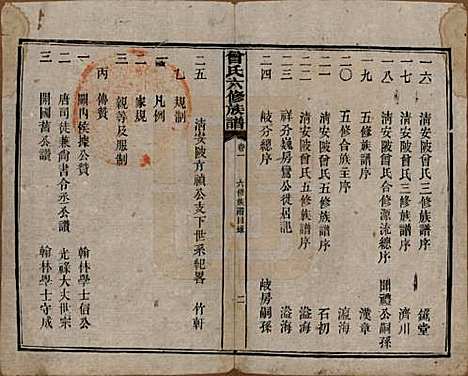 一六 清安陂曾氏三修族譜序 鑑堂
一七 清安陂曾氏三修族譜序 濟川
一八 清安陂曾氏合修源流總序 開禮公
一九 五修族譜序 漢章
二〇 五修合族主序 瀛海
二一 清安陂曾氏五修族譜序 石初
二二 清安陂曾氏五修族譜序 溢海
二三 祥芬巍房鸞公徙居記 溢海
二四 岐芬總序 岐房嗣孫
曾氏六修族譜
卷一 六修族譜目錄 二
二五 清安陂方禎公支下世系紀畧 竹軒
乙 規制
一 凡例
二 家規
三 親等及服制
丙 傳贊
一 關內侯據公贊 翰林學士信公
二 唐司徒兼尚書令丞公讚 光祿大夫世宗
三 開國舊公讚 翰林學士守成